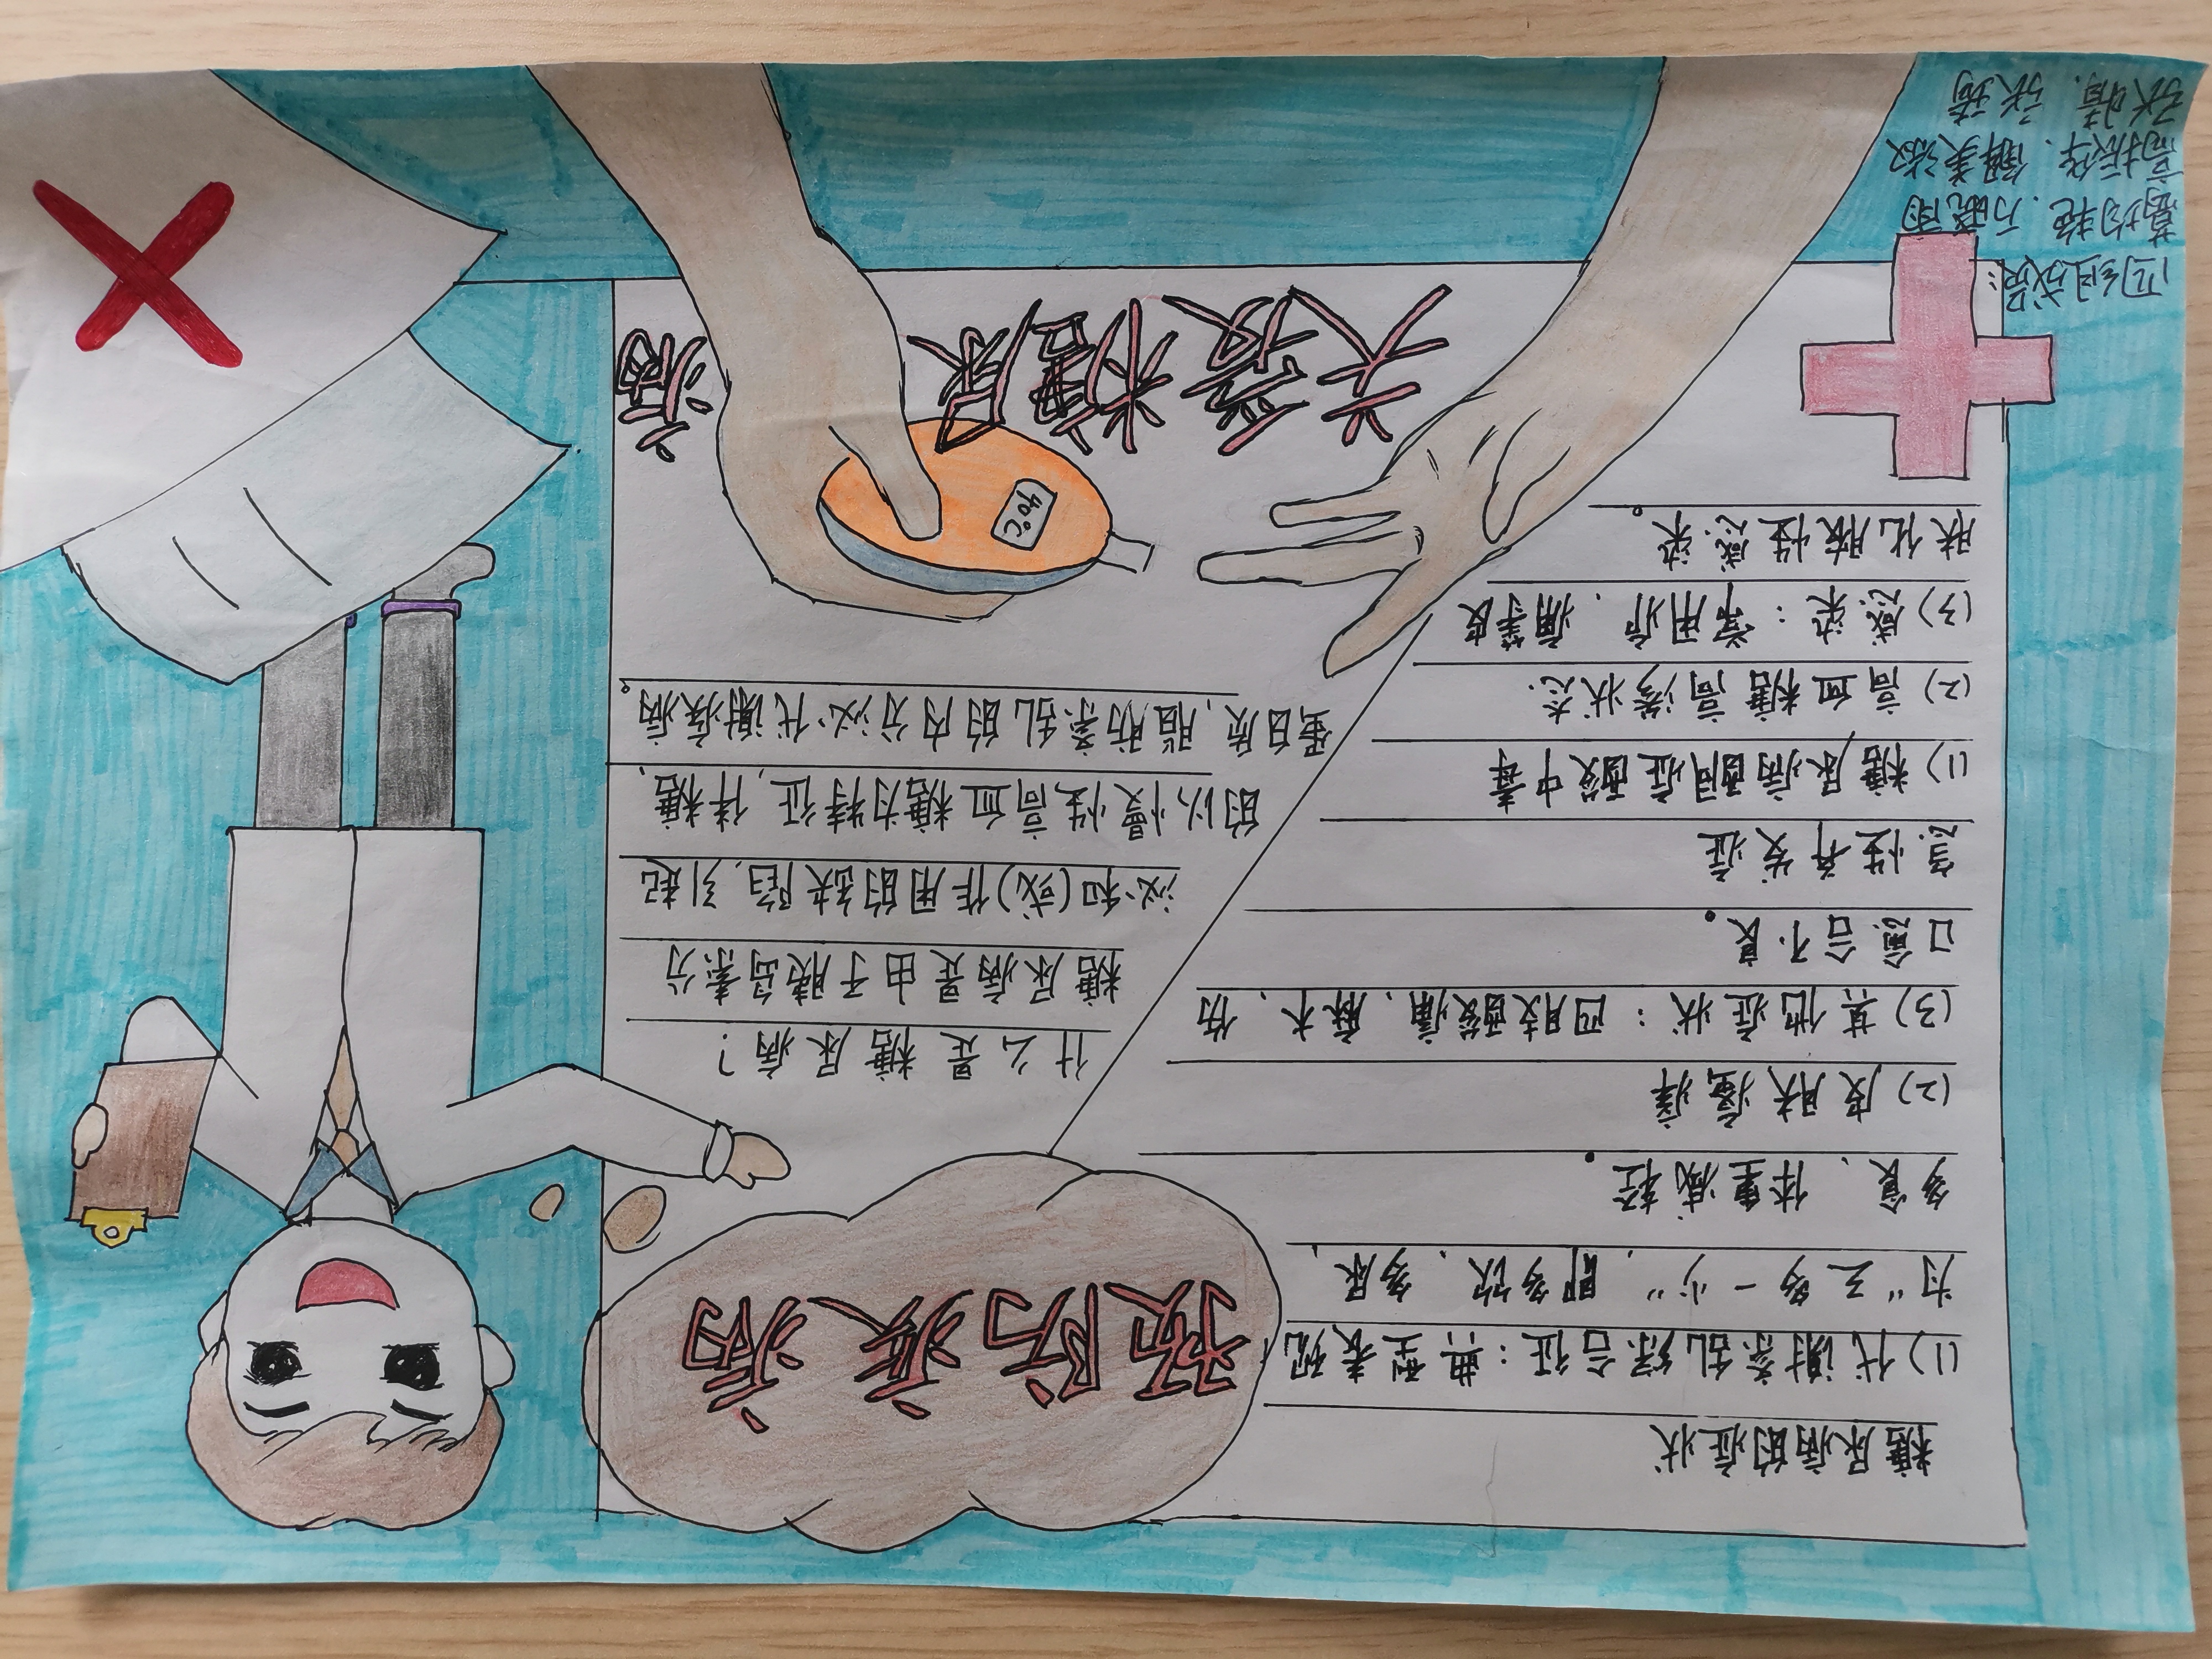 预防疾病
糖尿病的症状
(1)代谢紊乱综合征:典型表现
为“三多一少”,即多饮、多尿、
多食、体重减轻。
(2)皮肤瘙痒
(3)其他症状:四肢酸痛、麻木、伤
口愈合不良。
急性并发症
(1)糖尿病酮症酸中毒
(2)高血糖高渗状态.
(3)感染:常用疖、痈等皮
肤化脓性感染。
什么是糖尿病?
糖尿病是由于胰岛素分
泌和(或)作用的缺陷,引起
的以慢性高血糖为特征,伴糖、
蛋白质,脂肪紊乱的内分泌代谢疾病。
40°C
关爱糖尿病
四组成员: